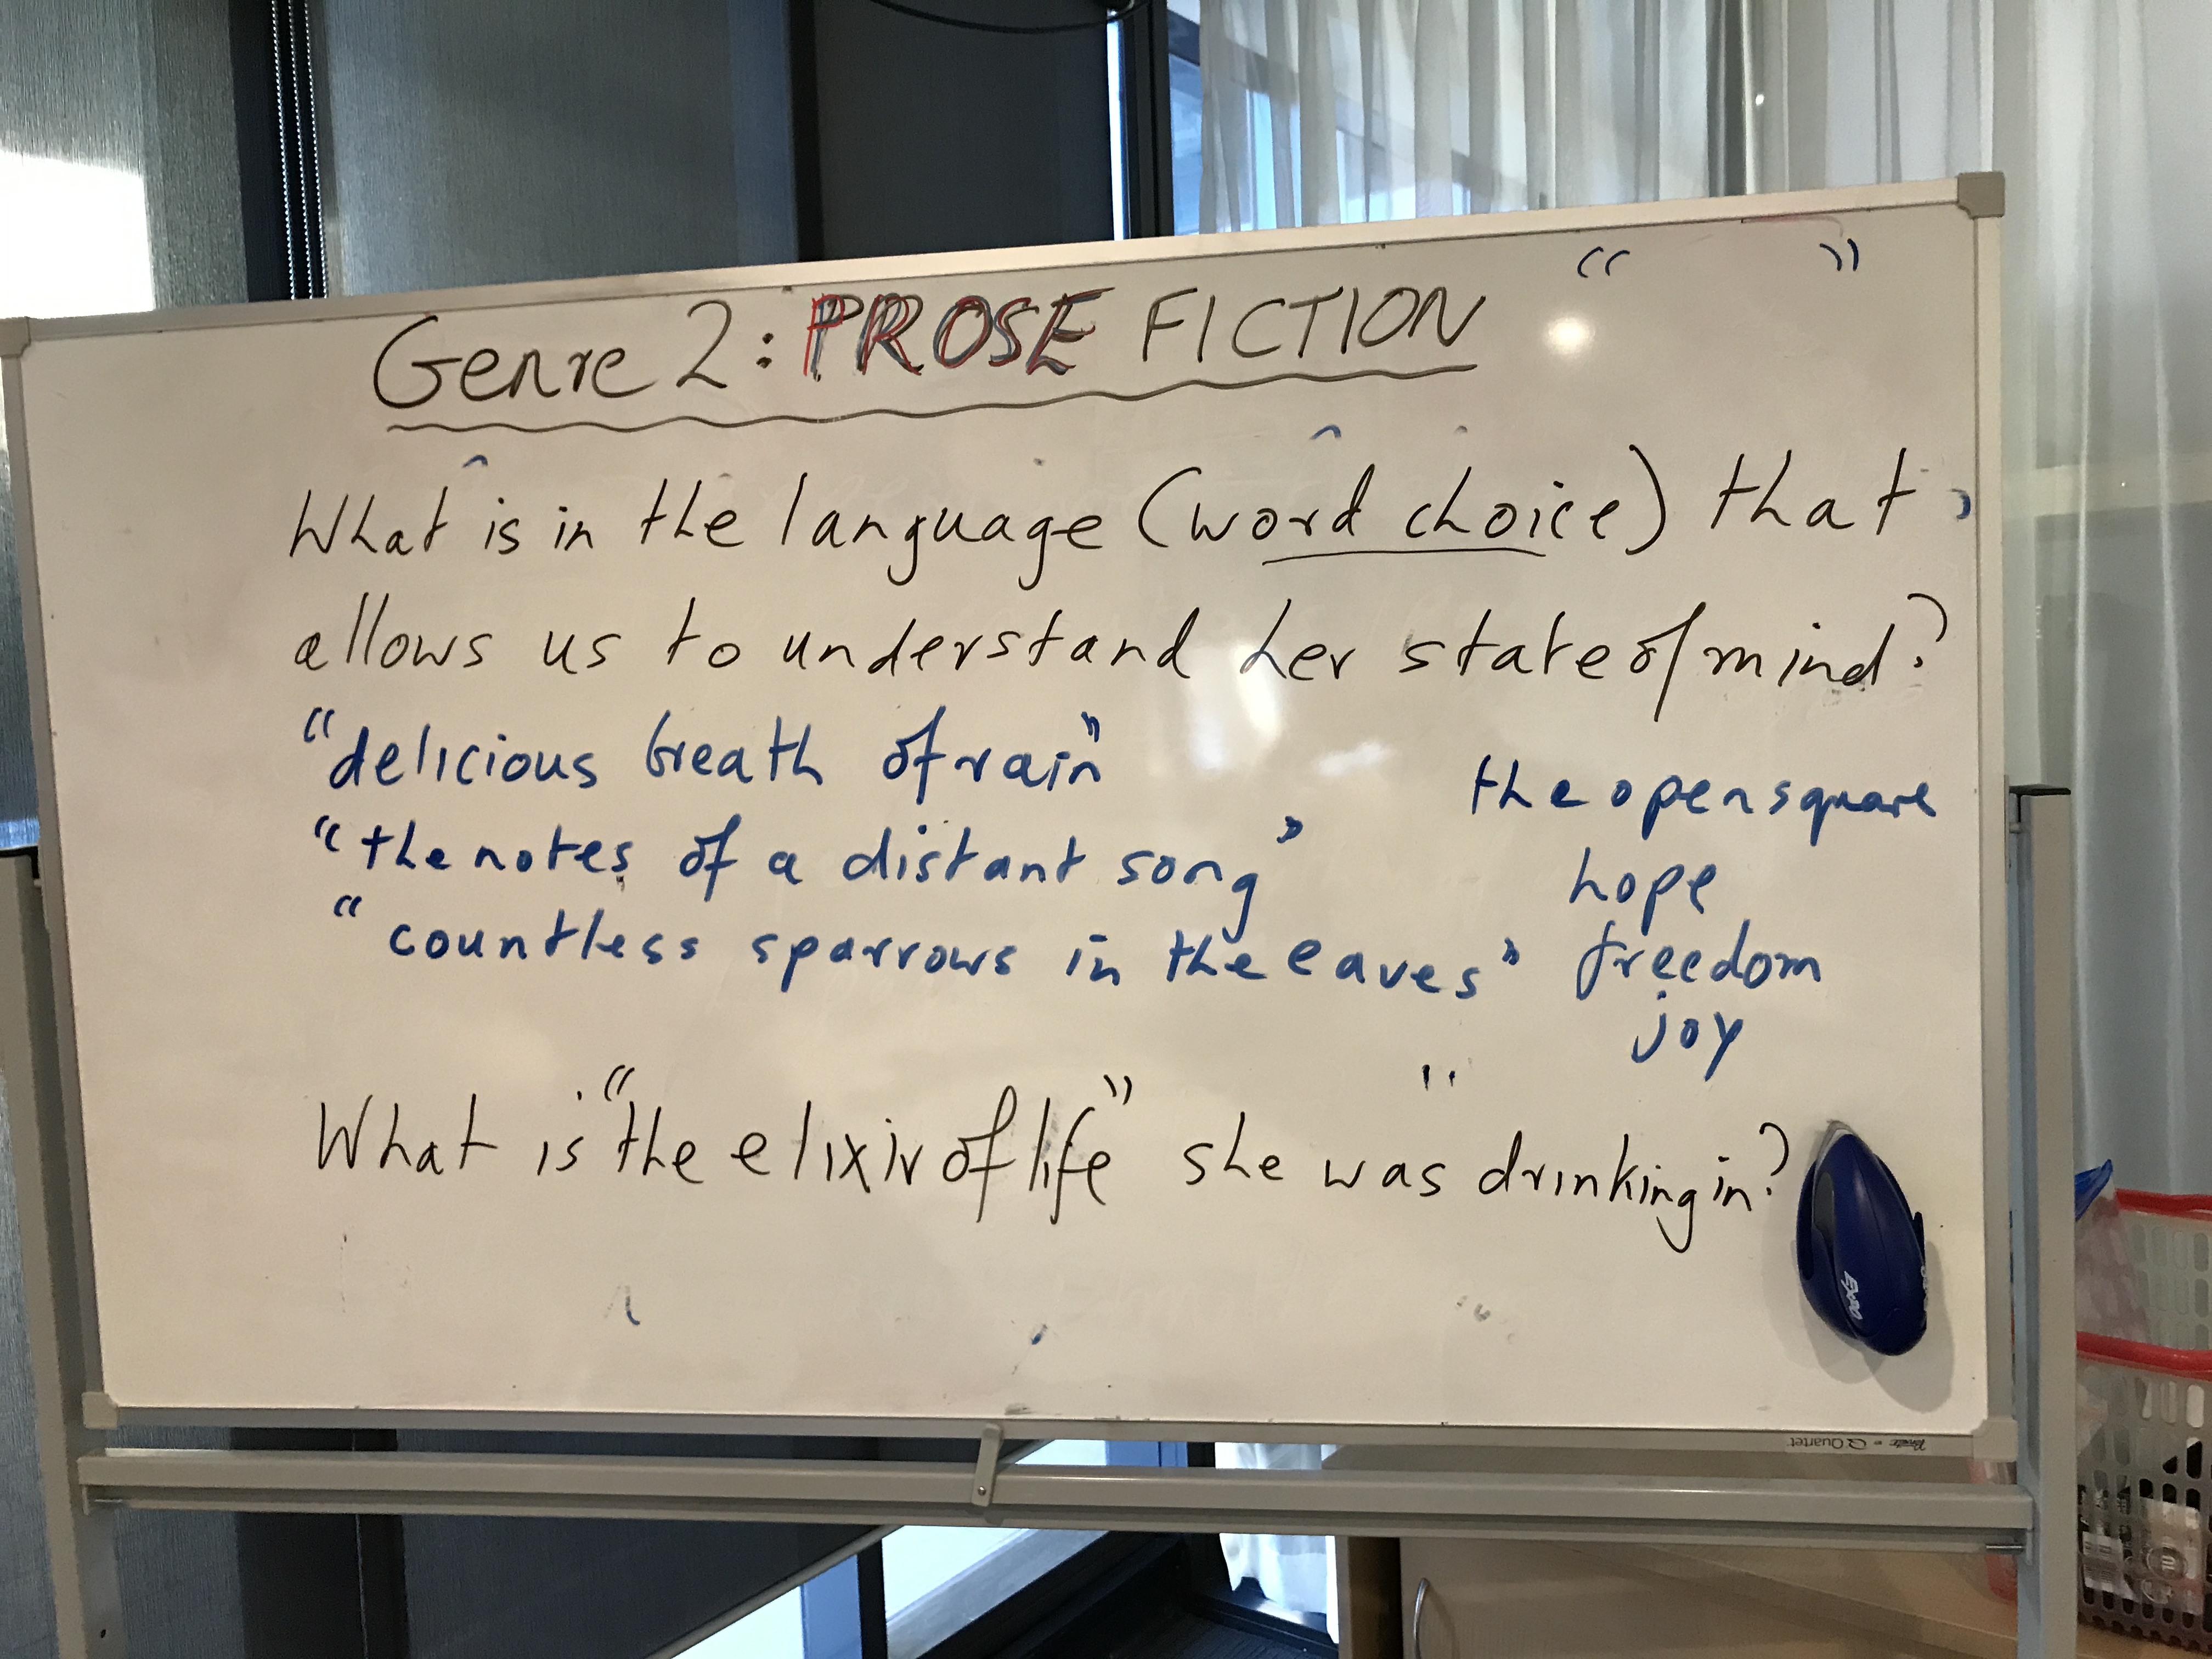 “ ”
Genre 2: PROSE FICTION
What is in the language (word choice) that
allows us to understand her state of mind?
“delicious breath of rain”
“the notes of a distant song”
“countless sparrows in the eaves”
the open square
hope
freedom
joy
What is “the elixir of life” she was drinking in?
EXPO
Quartet